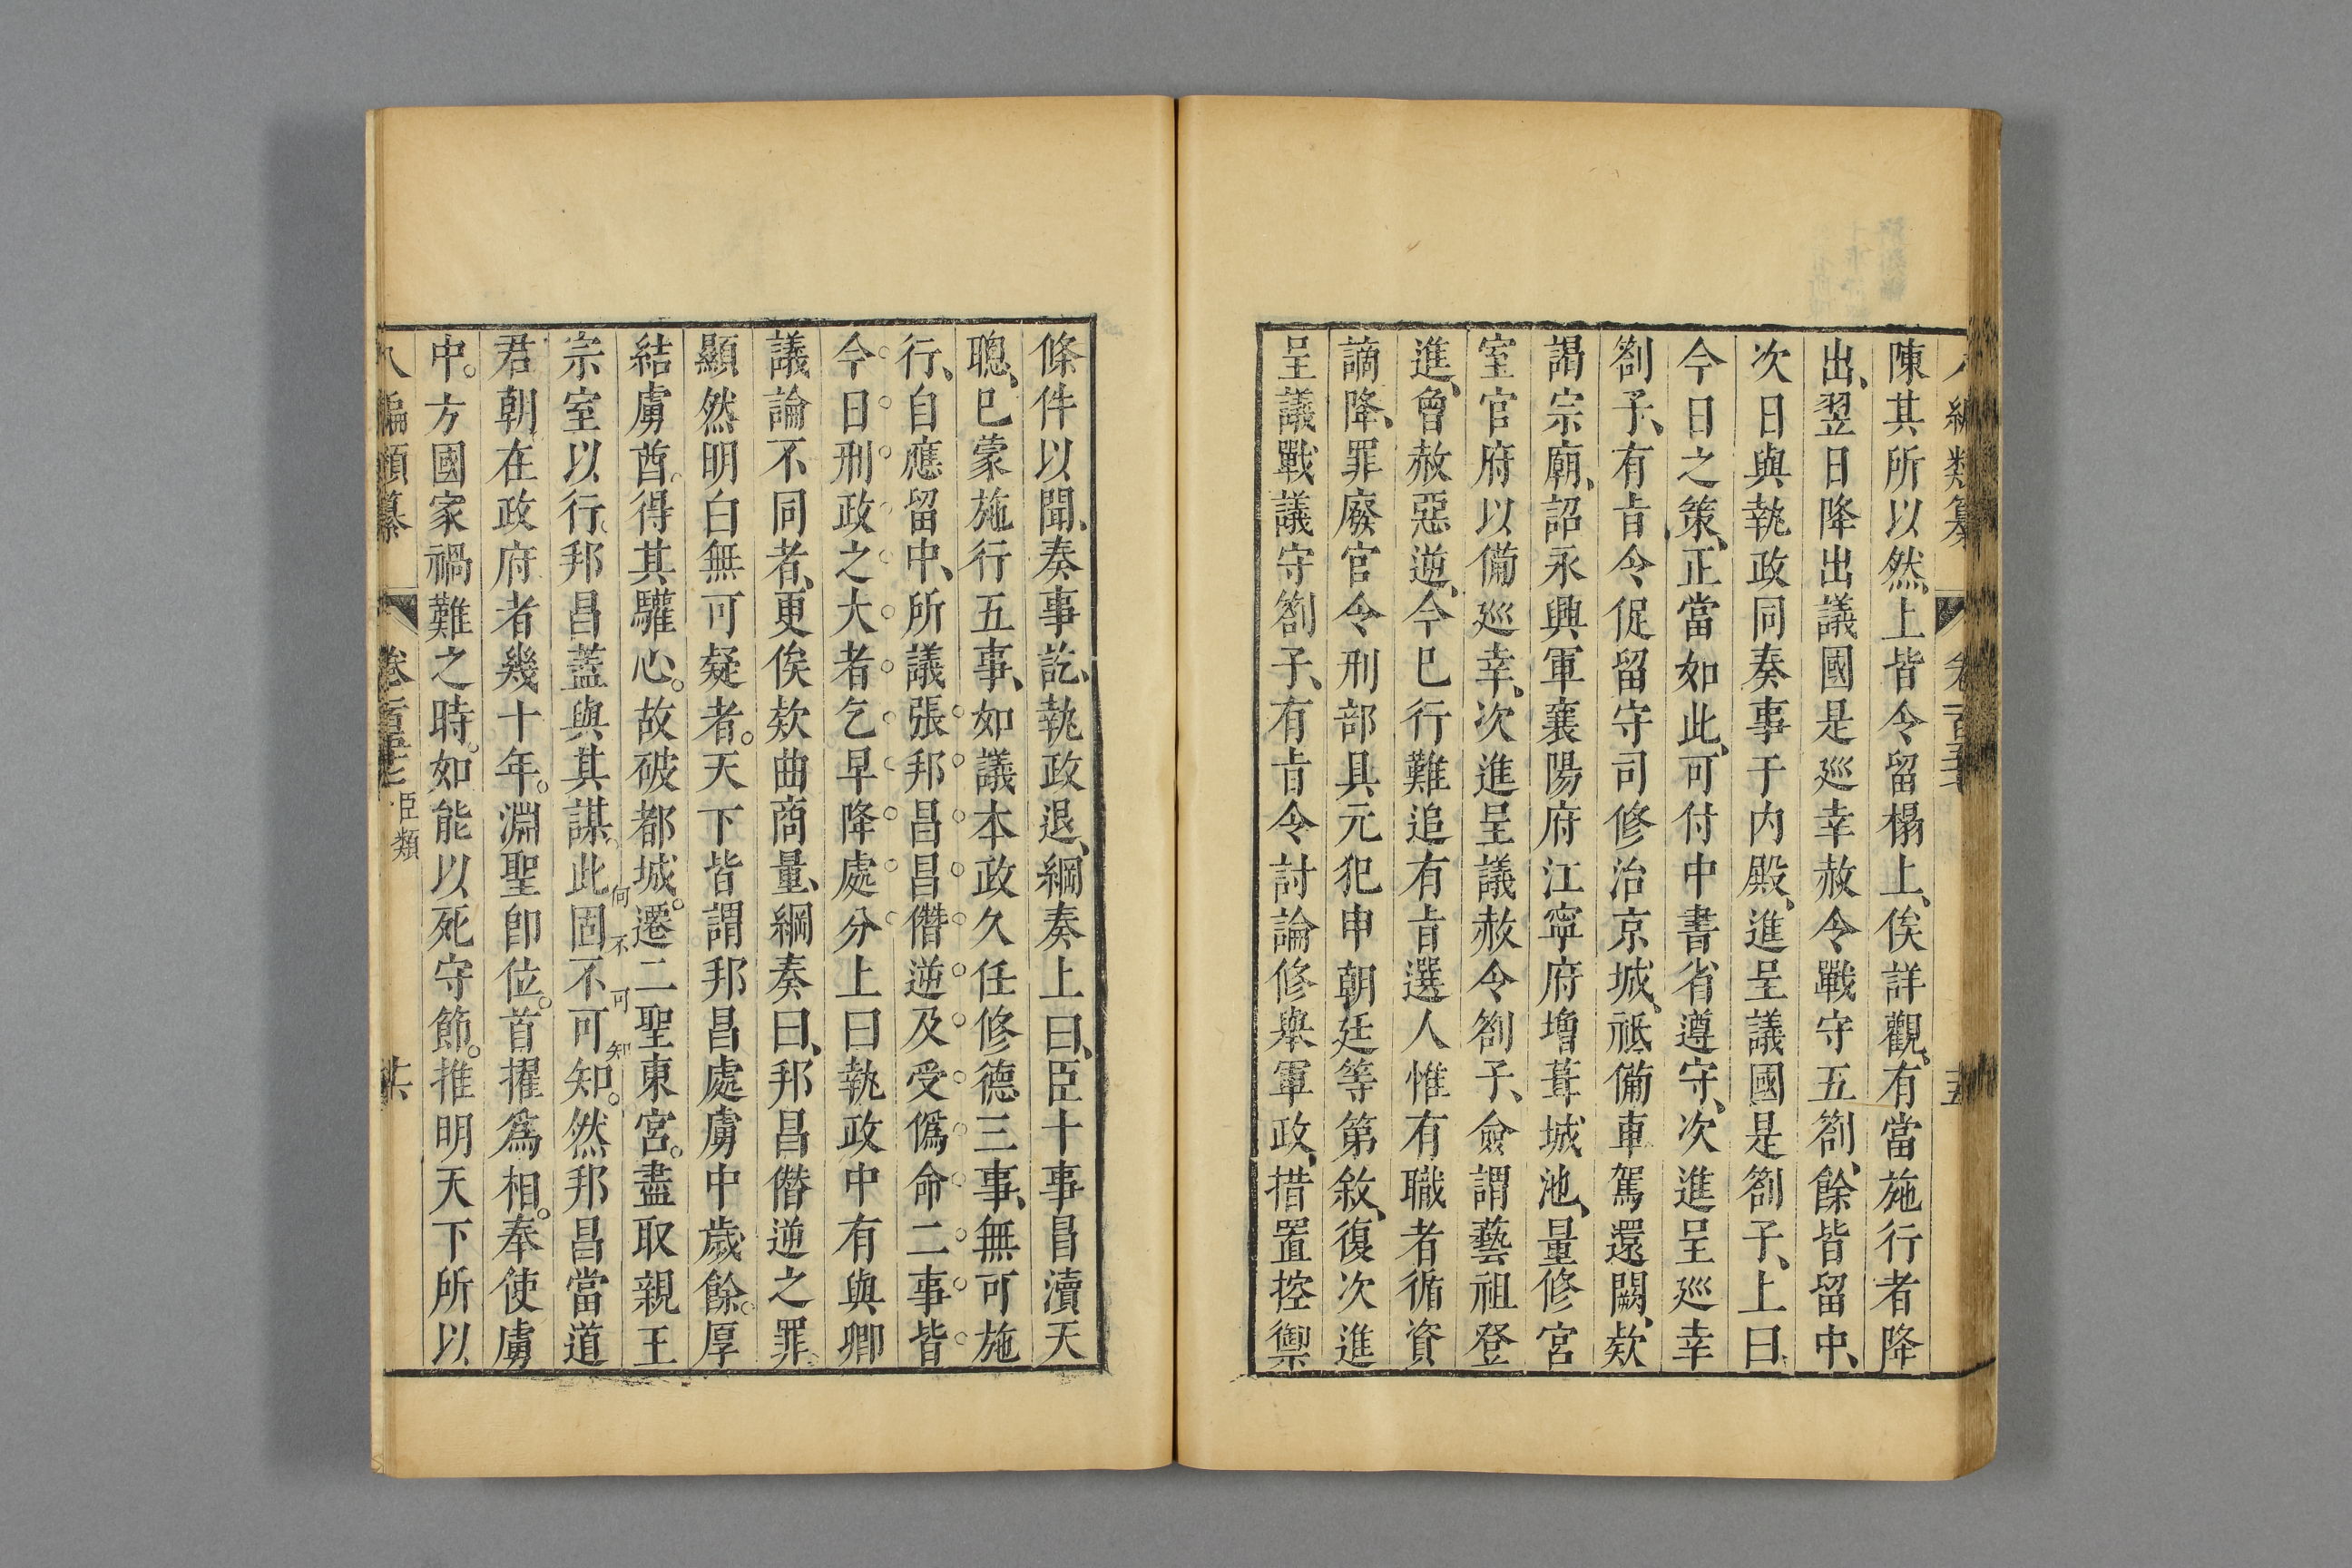 編類纂 卷一百五十 十五
陳其所以然、上皆令留榻上、俟詳觀、有當施行者降
出、翌日降出議國是巡幸赦令戰守五劄、餘皆留中、
次日與執政同奏事于内殿、進呈議國是劄子、上曰
今日之策、正當如此、可付中書省遵守、次進呈巡幸
劄子、有㫖令促留守司修治京城、祗備車駕還闕、欵
謁宗廟、詔永興軍襄陽府江寧府增葺城池、量修宮
室官府以備巡幸、次進呈議赦令劄子、僉謂藝祖登
進、曾赦惡逆、今已行難追有㫖選人惟有職者循資
謫降、罪廢官令刑部具元犯申朝廷等第敘、復次進
呈議戰議守劄子、有㫖令討論修舉軍政、措置控禦
條件以聞、奏事訖、執政退、綱奏上曰、臣十事昌瀆天
聰、已蒙施行五事、如議本政久任修德三事、無可施
行、自應留中、所議張邦昌昌僭逆及受僞命二事皆
今日刑政之大者乞早降處分上曰執政中有與卿
議論不同者、更俟欵曲商量、綱奏曰、邦昌僭逆之罪
顯然明白無可疑者。天下皆謂邦昌處虜中歲餘。厚
結虜酋。得其驩心。故破都城。遷二聖東宮。盡取親王
宗室以行。邦昌蓋與其謀。此固不可知。然邦昌當道
何不可知
君朝在政府者幾十年。淵聖卽位。首擢爲相。奉使虜
中。方國家禍難之時。如能以死守節。推明天下所以
八編類纂 卷一百五十 臣類 十六